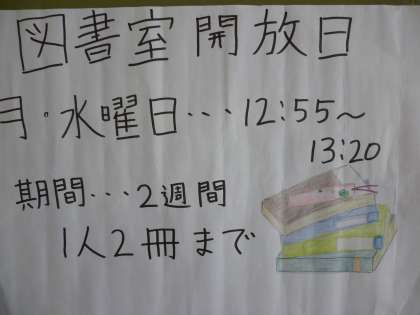 図書室開放日
月・水曜日…12:55～
13:20
期間…2週間
1人2冊まで